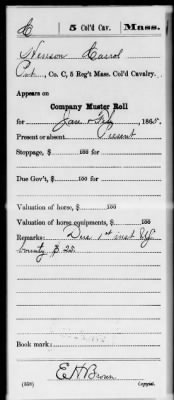 C | 5 Col'd Cav. | Mass.
Henson Carrol
Pvt., Co. C, 5 Reg't Mass. Col'd Cavalry.
Appears on
Company Muster Roll
for Jan & Feb, 1865.
Present or absent, Present
Stoppage, $ 100
Due Gov't, $ 100
Valuation of horse, $ 100
Valuation of horse equipments, $ 100
Remarks: Due 1st inst US
bounty $22.
Book mark:
E H Brown
(358) Copyist.